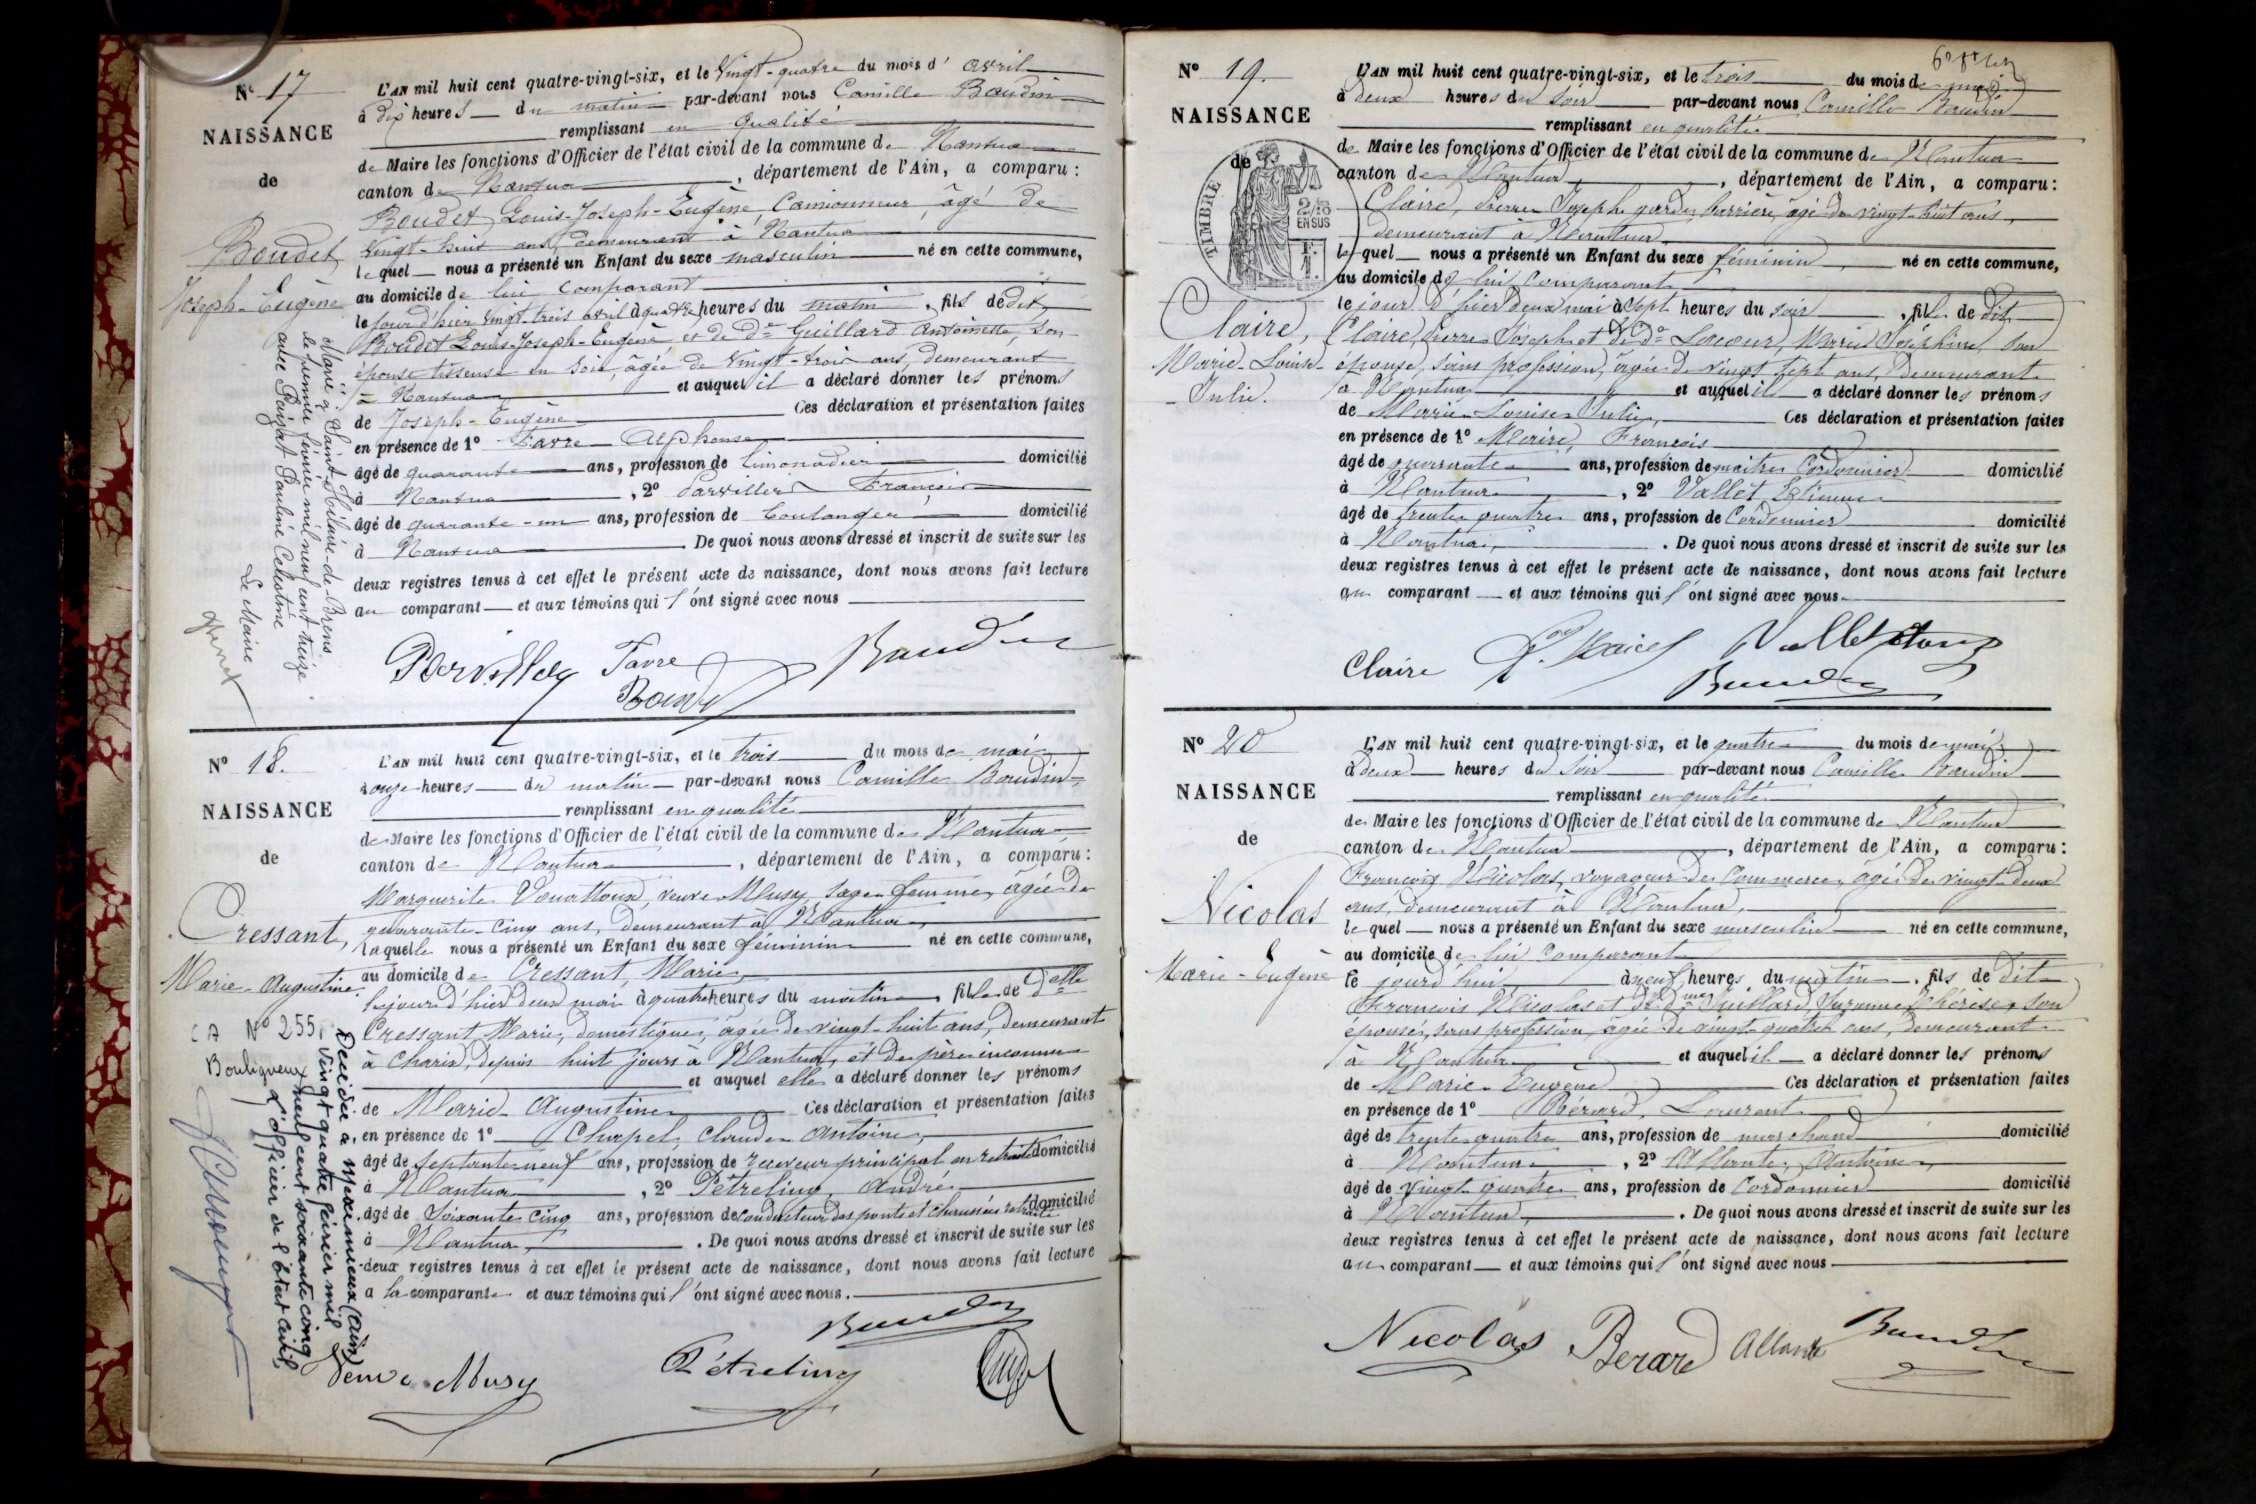 N° 17
NAISSANCE
de
Boudet
Joseph-Eugène
Marié à Saint-Hilaire-de-Brens
le premier février mil neuf cent treize
avec Payat Pauline Célestine
Le Maire
L'AN mil huit cent quatre-vingt-six, et le vingt-quatre du mois d'avril
à dix heures du matin par-devant nous Camille Baudin
remplissant en qualité
de Maire les fonctions d'Officier de l'état civil de la commune de Nantua
canton de Nantua, département de l'Ain, a comparu :
Boudet Louis-Joseph-Eugène, Camionneur, âgé de
vingt-huit ans, demeurant à Nantua
lequel nous a présenté un Enfant du sexe masculin né en cette commune,
au domicile de lui comparant
le jour d'hier vingt-trois avril à quatre heures du matin, fils de dit
Boudet Louis-Joseph-Eugène et de de Guillard Antoinette, son
épouse tisseuse en soie, âgée de vingt-trois ans, demeurant
à Nantua et auquel il a déclaré donner les prénoms
de Joseph-Eugène Ces déclaration et présentation faites
en présence de 1° Favre Alphonse
âgé de quarante ans, profession de limonadier domicilié
à Nantua, 2° Parvillers François
âgé de quarante-un ans, profession de boulanger domicilié
à Nantua. De quoi nous avons dressé et inscrit de suite sur les
deux registres tenus à cet effet le présent acte de naissance, dont nous avons fait lecture
au comparant et aux témoins qui l'ont signé avec nous
Favre Baudin
Boudet
N° 18.
NAISSANCE
de
Cressant,
Marie-Augustine
N° 255
Bouligneux
Décédée à Meximieux (Ain)
vingt quatre février mil
neuf cent soixante cinq
L'officier de l'état civil,
L'AN mil huit cent quatre-vingt-six, et le trois du mois de mai
à onze heures du matin par-devant nous Camille Baudin
remplissant en qualité
de Maire les fonctions d'Officier de l'état civil de la commune de Nantua
canton de Nantua, département de l'Ain, a comparu :
Marguerite veuve Musy, sage-femme, âgée de
quarante-cinq ans, demeurant à Nantua,
laquelle nous a présenté un Enfant du sexe féminin né en cette commune,
au domicile de Cressant, Marie,
le jour d'hier deux mai à quatre heures du matin, fille de delle
Cressant, Marie, domestique, âgée de vingt-huit ans, demeurant
à Charix, depuis huit jours à Nantua, et de père inconnu
et auquel elle a déclaré donner les prénoms
de Marie-Augustine Ces déclaration et présentation faites
en présence de 1° Chapel, Claude Antoine,
âgé de septante-neuf ans, profession de receveur principal en retraite domicilié
à Nantua, 2° Pétreling, André
âgé de soixante cinq ans, profession de conducteur des ponts et chaussées retraité domicilié
à Nantua. De quoi nous avons dressé et inscrit de suite sur les
deux registres tenus à cet effet le présent acte de naissance, dont nous avons fait lecture
a la comparante et aux témoins qui l'ont signé avec nous.
Baudin
Veuve Musy Pétreling
N° 19.
NAISSANCE
de
TIMBRE
2/10
EN SUS
Claire,
Marie-Louise-
Julie.
L'AN mil huit cent quatre-vingt-six, et le trois du mois de mai
à deux heures du soir par-devant nous Camille Baudin
remplissant en qualité
de Maire les fonctions d'Officier de l'état civil de la commune de Nantua
canton de Nantua, département de l'Ain, a comparu :
Claire, Pierre Joseph, garde barrière, âgé de vingt-huit ans,
demeurant à Nantua
lequel nous a présenté un Enfant du sexe féminin né en cette commune,
au domicile de lui comparant
le jour d'hier deux mai à sept heures du soir, fille de dit
Claire, Pierre Joseph et de de Marie Joséphine, son
épouse, sans profession, âgée de vingt sept ans, demeurant
à Nantua et auquel il a déclaré donner les prénoms
de Marie-Louise-Julie Ces déclaration et présentation faites
en présence de 1° Maire, François
âgé de quarante ans, profession de maître cordonnier domicilié
à Nantua, 2° Vallet Etienne
âgé de trente quatre ans, profession de cordonnier domicilié
à Nantua. De quoi nous avons dressé et inscrit de suite sur les
deux registres tenus à cet effet le présent acte de naissance, dont nous avons fait lecture
au comparant et aux témoins qui l'ont signé avec nous.
Claire
Baudin
N° 20
NAISSANCE
de
Nicolas
Marie-Eugène
L'AN mil huit cent quatre-vingt-six, et le quatre du mois de mai
à deux heures du soir par-devant nous Camille Baudin
remplissant en qualité
de Maire les fonctions d'Officier de l'état civil de la commune de Nantua
canton de Nantua, département de l'Ain, a comparu :
François Nicolas, voyageur de commerce, âgé de vingt-deux
ans, demeurant à Nantua,
lequel nous a présenté un Enfant du sexe masculin né en cette commune,
au domicile de lui comparant
le jourd'hui à neuf heures du matin, fils de dit
François Nicolas et de dme Juillard Suzanne Thérèse, son
épouse, sans profession, âgée de vingt-quatre ans, demeurant
à Nantua et auquel il a déclaré donner les prénoms
de Marie-Eugène Ces déclaration et présentation faites
en présence de 1° Bérard, Laurent
âgé de trente-quatre ans, profession de marchand domicilié
à Nantua, 2° Allante, Antoine,
âgé de vingt-quatre ans, profession de cordonnier domicilié
à Nantua. De quoi nous avons dressé et inscrit de suite sur les
deux registres tenus à cet effet le présent acte de naissance, dont nous avons fait lecture
au comparant et aux témoins qui l'ont signé avec nous
Nicolas Berard Allante Baudin